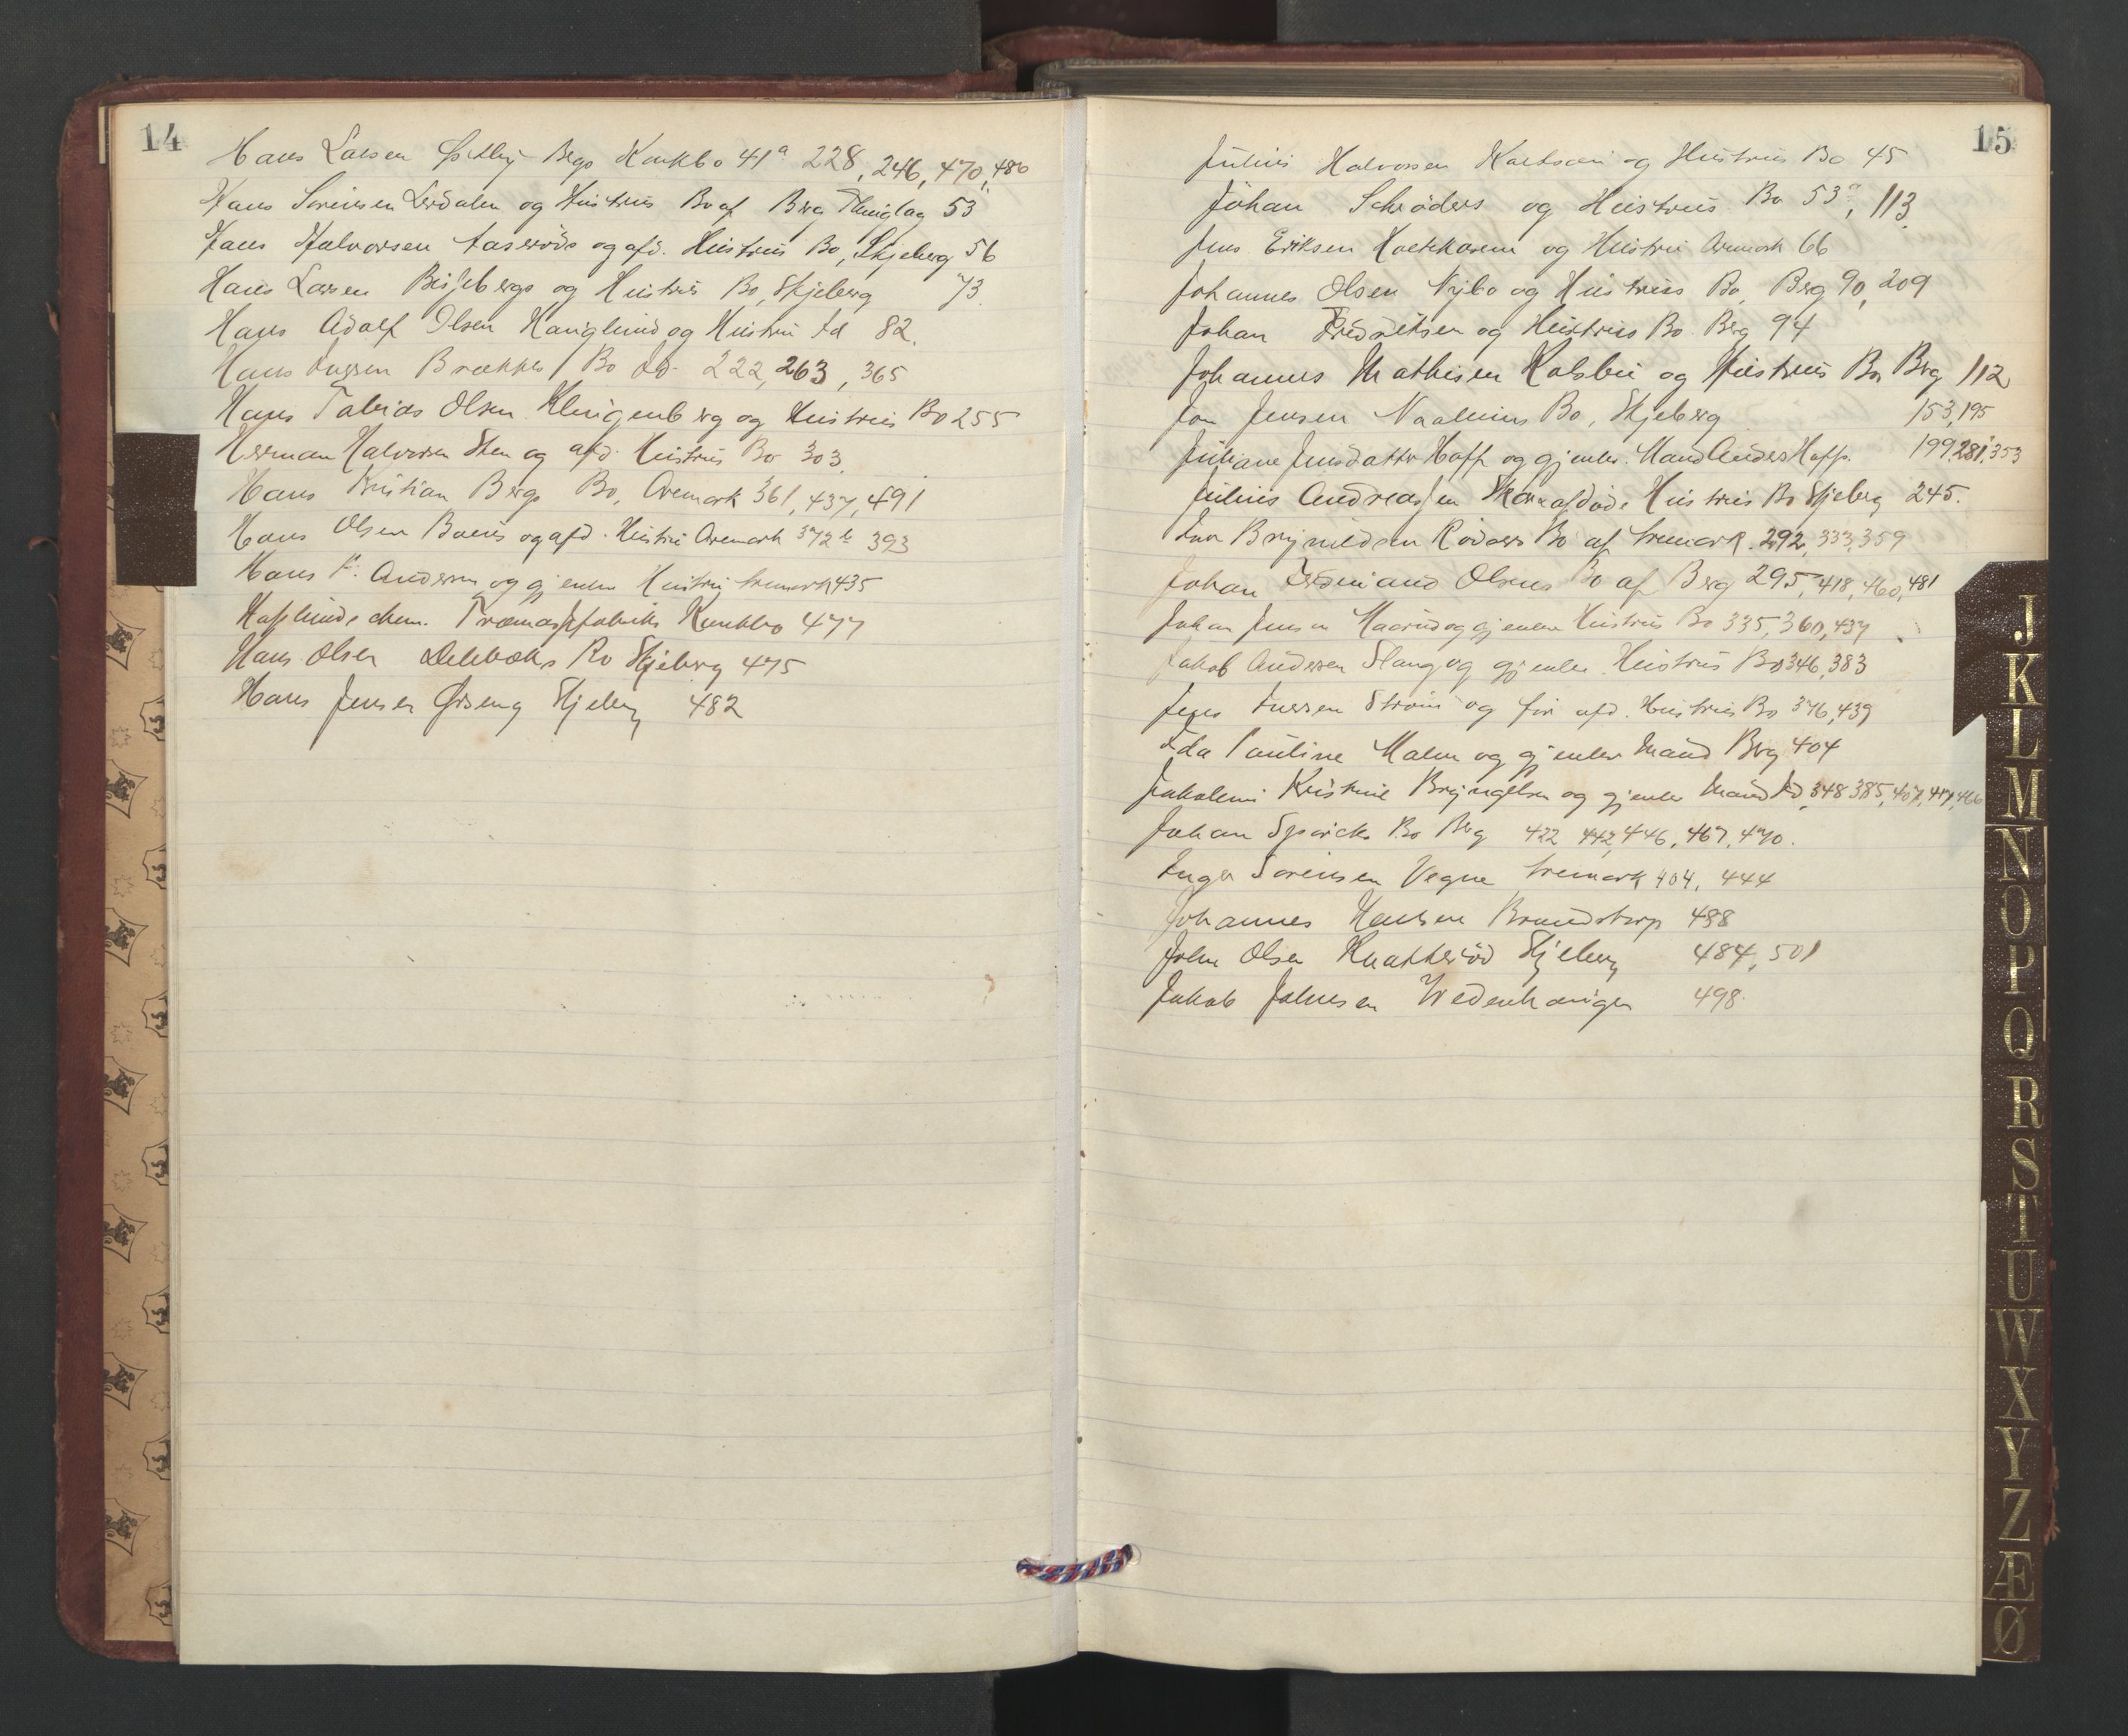 14
Hans Larsen Østby Bergs Konkbo 41a 228, 246, 470, 480
Hans Sørensen Lerdalen og Hustrus Bo af Berg Thinglag 53
Hans Halvorsen Aaserøds og afd. Hustrus Bo, Skjeberg 56
Hans Larsen Bisjebergs og Hustrus Bo, Skjeberg 73
Hans Adolf Olsen Hauglund og Hustru Id 82.
Hans Brække Bo Id. 222, 263, 365
Hans Tobias Olsen Klingenberg og Hustrus Bo 255
Herman Halvorsen Sten og afd. Hustrus Bo 303.
Hans Kristian Bergs Bo, Aremark 361, 437, 491
Hans Olsen Boens og afd. Hustru Aremark 372b 393
Hans A. Andersen og gjenlev Hustru Aremark 435
Hafslunds chem. Træmassefabriks Konkbo 477
Hans Olsen Delebæks Bo Skjeberg 475
Hans Jensen Ørseng Skjeberg 482
15
Julius Halvorsen og Hustrus Bo 45
Johan Schrøders og Hustrus Bo 53a, 113
Jens Eriksen Holtekasene og Hustru Aremark 66
Johannes Olsen Nybo og Hustrus Bo, Berg 90, 209
Johan Fredriksen og Hustrus Bo. Berg 94
Johannes Mathisen Kolsbu og Hustrus Bo Berg 112
Jon Jensen Bo, Skjeberg 153, 195
Juliane Jensdatter Hoff og gjenlev. Mand Anders Hoff. 199, 281, 353
Julius Andreassen afdøde Hustrus Bo Skjeberg 245.
Iver Brynildsen Rødsers Bo af Aremark. 292, 333, 359
Johan Ferdinand Olsens Bo af Berg 295, 418, 460, 481
Johan Jensen og gjenlev Hustrus Bo 335, 360, 437
Jakob Andersen Stang og gjenlev. Hustrus Bo 346, 383
Jens Iversen Strøm og før afd. Hustrus Bo 376, 439
Ida Pauline Malm og gjenlev Mand Berg 404
Jakobine Kristine Bryngelsen og gjenlev Mand Id, 348 385, 407, 417, 466
Johan Sparicks Bo Berg 422 442, 446, 467, 470.
Inger Sørensen Vegne Aremark 404, 444
Johannes Hansen Brandstorp 488
John Olsen Knatterød Skjeberg 484, 501
Jakob Johnsen Wedenhaugen 498.
J
K
L
M
N
O
P
Q
R
S
T
U
W
X
Y
Z
Æ
Ø